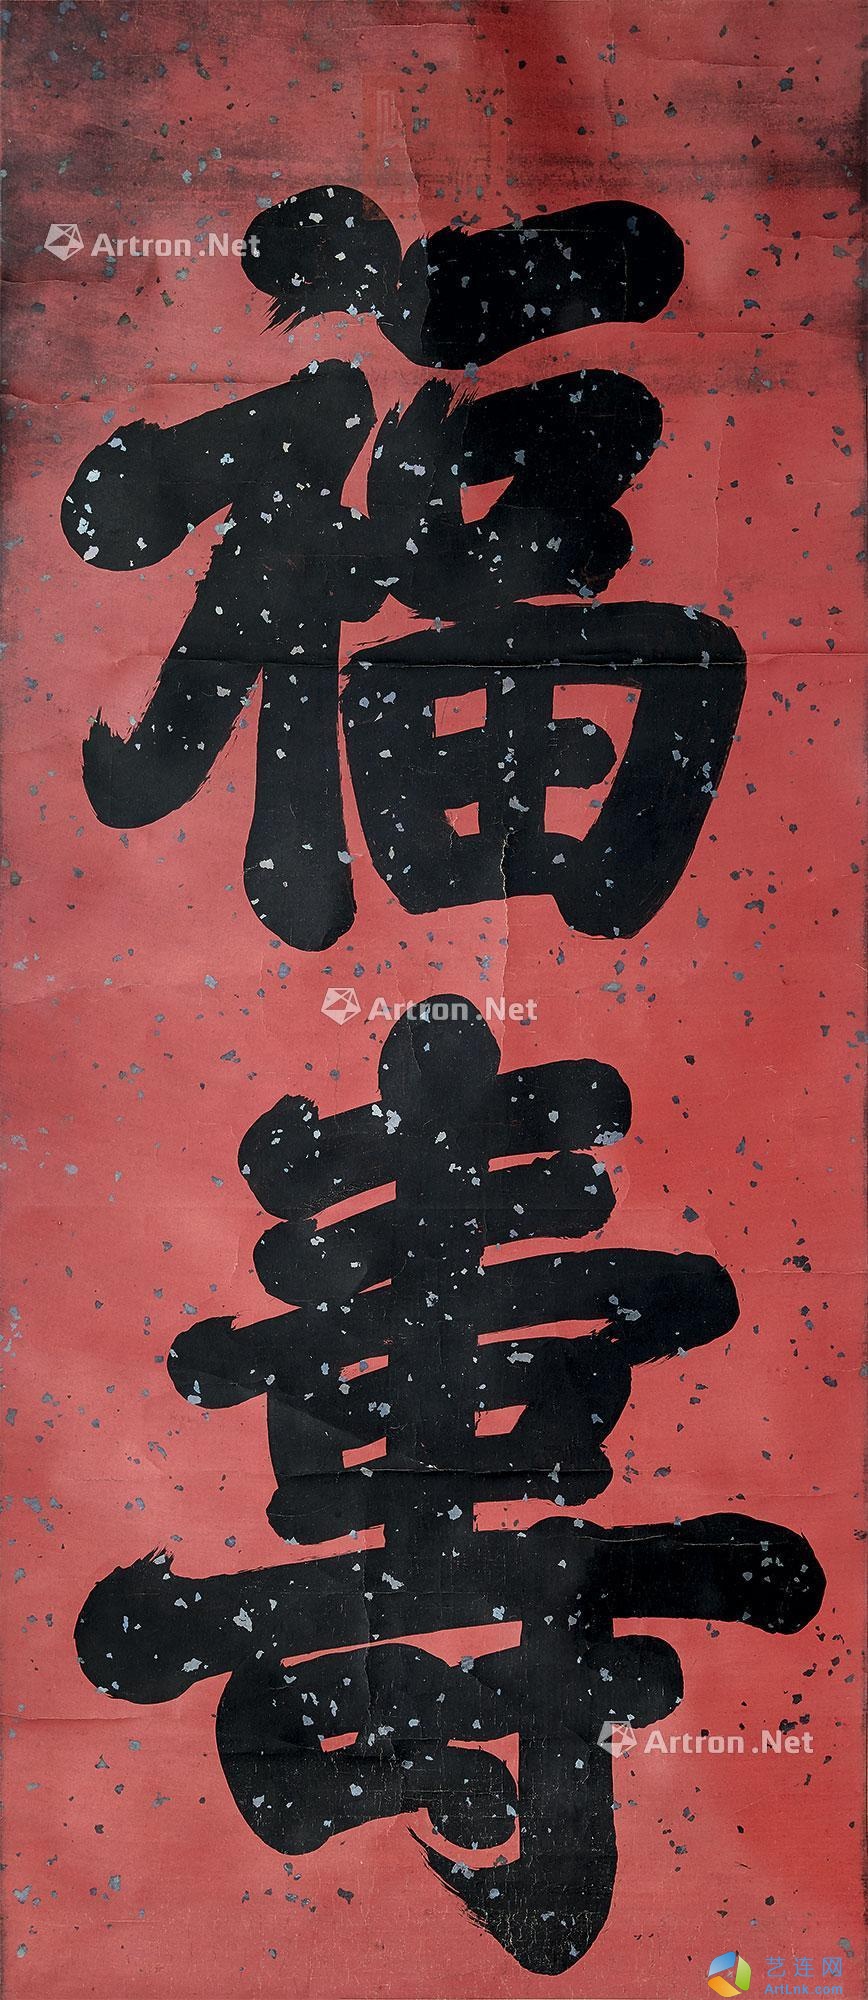 福
壽
Artron.Net
Artron.Net
Artron.Net
艺连网
ArtLnk.com